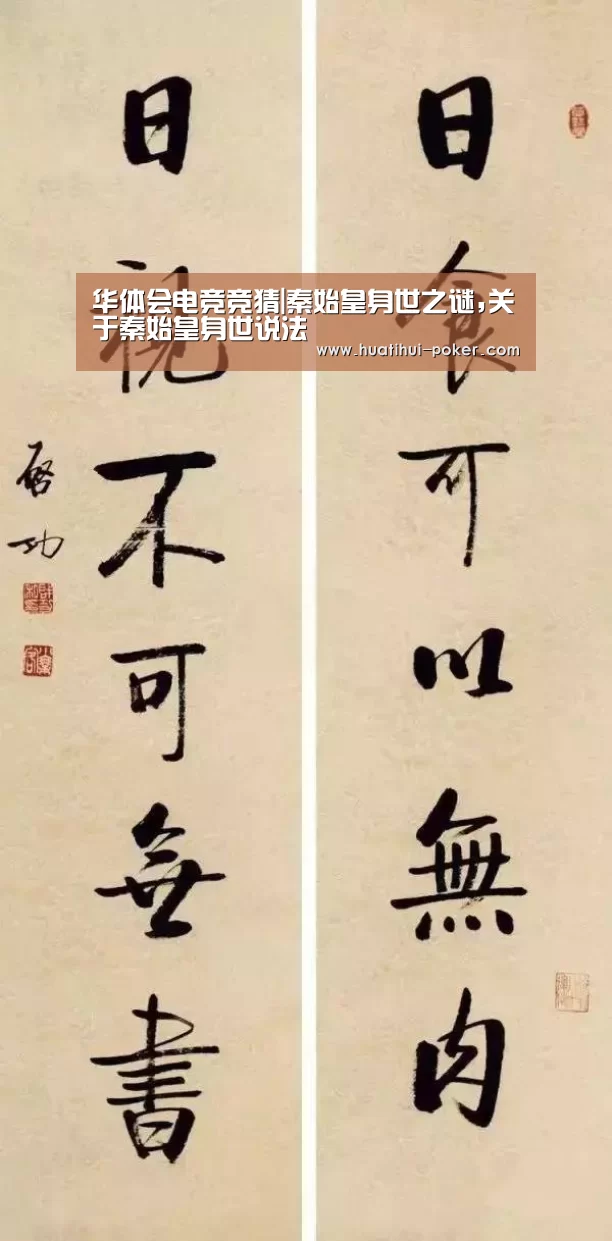 日食可以無肉
日視不可無書
啓功
华体会电竞竞猜|秦始皇身世之谜,关
于秦始皇身世说法
www.huatihui-poker.com